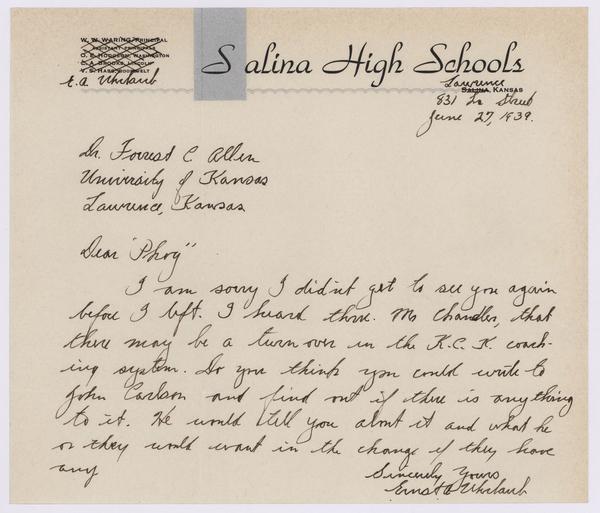 W. W. WARING, PRINCIPAL
ASSISTANT PRINCIPALS
WASHINGTON
C. A. BROOKS, LINCOLN
V. S. ROOSEVELT
E. A. Uhrlaub
Salina High Schools
Lawrence
SALINA, KANSAS
831 Street
June 27, 1939.
Dr. Forrest C Allen
University of Kansas
Lawrence, Kansas
Dear "Phog"
I am sorry I didn't get to see you again
before I left. I heard thro. Mr Chandler, that
there may be a turn over in the K.C.K. coach-
ing system. Do you think you could write to
John Carlson and find out if there is anything
to it. He would tell you about it and what he
or they would want in the change if they have
any
Sincerely Yours
Ernst A Uhrlaub